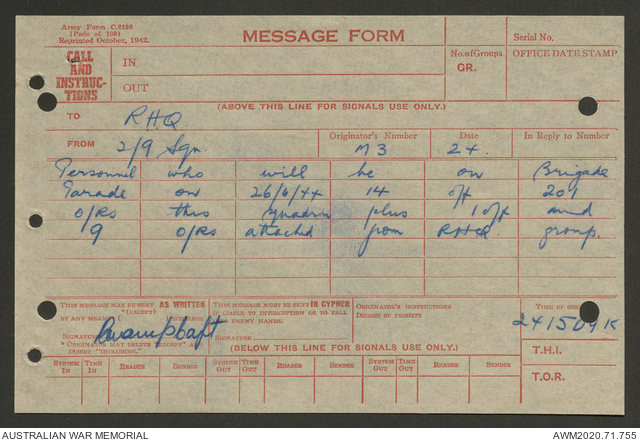 Army Form C.2130
(Pads of 100)
Reprinted October, 1942.
MESSAGE FORM
Serial No.
CALL AND INSTRUC-TIONS
IN
OUT
No. of Groups
GR.
OFFICE DATE STAMP
(ABOVE THIS LINE FOR SIGNALS USE ONLY.)
TO R.H.Q.
FROM 2/9 Sqn.
Originator's Number M3
Date 24.
In Reply to Number
Personnel who will be on Brigade
Parade on 26/6/44 14 o/r 201
O/Rs this squadron plus 1 o/r and
9 O/Rs attached from RHQ group.
THIS MESSAGE MAY BE SENT AS WRITTEN
(EXCEPT)
BY ANY MEANS WIRELESS.
SIGNATURE
* ORIGINATOR MAY DELETE "EXCEPT" AND INSERT "INCLUDING."
THIS MESSAGE MUST BE SENT IN CYPHER
IF LIABLE TO INTERCEPTION OR TO FALL
ENEMY HANDS.
SIGNATURE
ORIGINATOR'S INSTRUCTIONS
DEGREE OF PRIORITY
TIME OF
241509K
(BELOW THIS LINE FOR SIGNALS USE ONLY.)
T.H.I.
T.O.R.
SYSTEM IN TIME IN READER SENDER SYSTEM OUT TIME OUT READER SENDER SYSTEM OUT TIME OUT READER SENDER
AUSTRALIAN WAR MEMORIAL
AWM2020.71.755